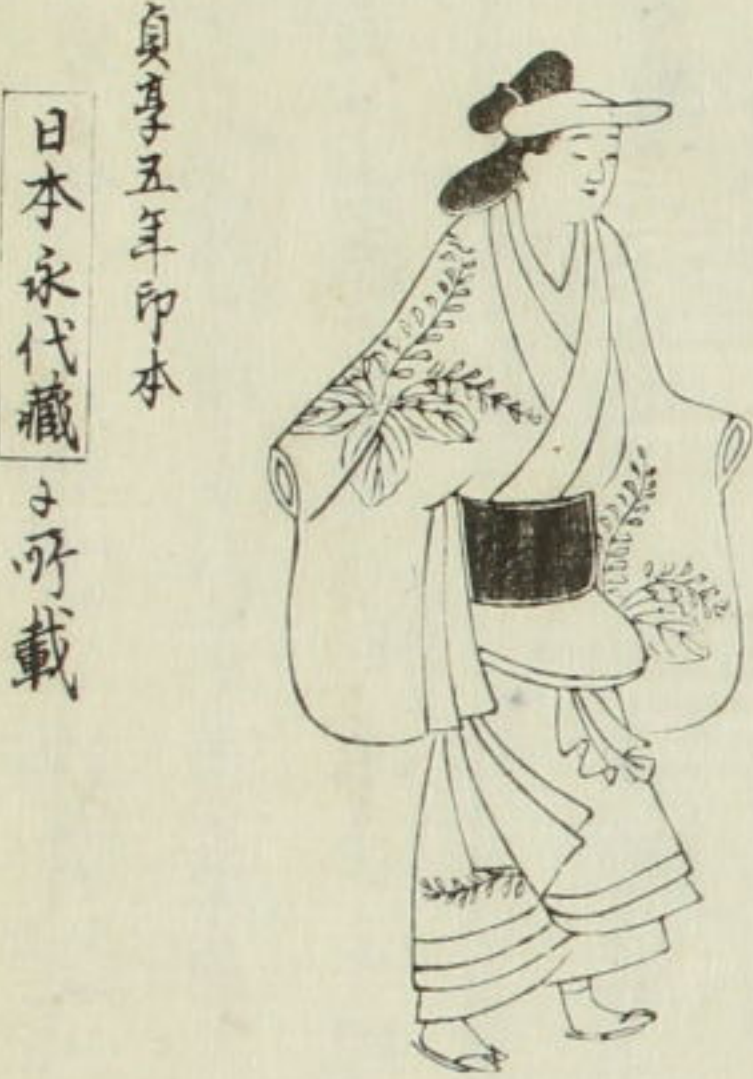 貞享五年印本
日本永代蔵に所載